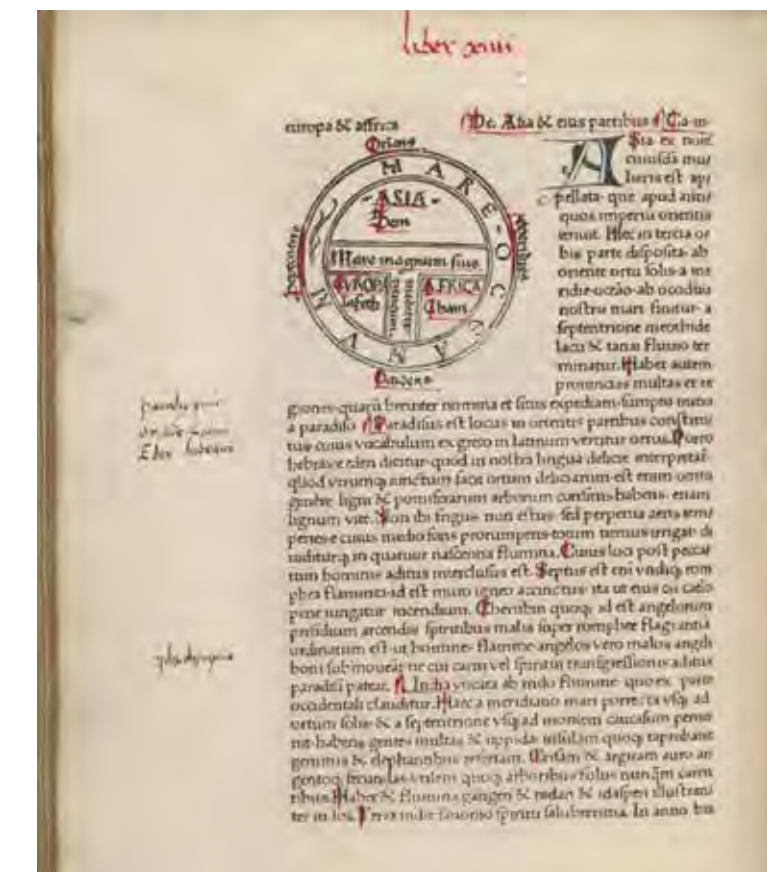 liber xiiii
europa & affrica
De Asia & eius partibus Ca. iii
Oriens
MARE OCCEANVM
ASIA
Sem
Mare magnum siue
EVROPA
Iafeth
AFRICA
Cham
Septentrio
Meridies
Occidens
Asia ex noīe
cuiusdā mu/
lieris est ap/
pellata. que apud anti/
quos imperiū orientis
tenuit. Hec in tercia or
bis parte disposita. ab
oriente ortu solis. a me
ridie. oceāo. ab occiduo
nostro mari finitur. a
septentrione meothide
lacu & tanai fluuio ter
minatur. Habet autem
prouincias multas et re
giones. quarū breuiter nomina et situs expediam. sumpto initio
a paradiso Paradisus est locus in orientis partibus constitu
tus. cuius vocabulum ex greco in latinum vertitur ortus. Porro
hebraice eden dicitur. quod in nostra lingua delicie interpretat̄.
quod vtrumq; iunctum facit ortum deliciarum. est enim omni
genere ligni & pomiferarum arborum consitus. habens. etiam
lignum vite. Non ibi frigus. non estus. sed perpetua aeris tem/
peries. e cuius medio fons prorumpens. totum nemus irrigat. di
uiditurq; in quatuor nascentia flumina. Cuius loci post pecca/
tum hominis aditus interclusus est. Septus est eni vndiq; rom
phea flammea. id est muro igneo accinctus. ita ut eius cū caelo
pene iungatur incendium. Cherubin quoq; id est angelorum
presidium arcendis spiritibus malis super romphee flagrantia
ordinatum est. ut homines flamme. angelos vero malos angeli
boni submoueāt. ne cui carni vel spiritui transgressionis aditus
paradisi pateat. India vocata ab indo flumine. quo ex parte
occidentali clauditur. Haec a meridiano mari porrecta vsq; ad
ortum solis. & a septentrione vsq; ad montem caucasum perue
nit. habens gentes multas & oppida. insulam quoq; taprobane
gemmis & elephantibus refertam. Crisam & argiram auro ar
gentoq; fecundas. vtilem quoq; arboribus folus nunq̄m caren
tibus. Habet & flumina gangen & indan & idaspen illustran/
tes indos. Terra indie fauonio spiritu saluberrima. In anno bis